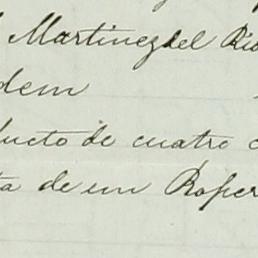 Martinez del Rio
dem
ucto de cuatro
ta de un Roper